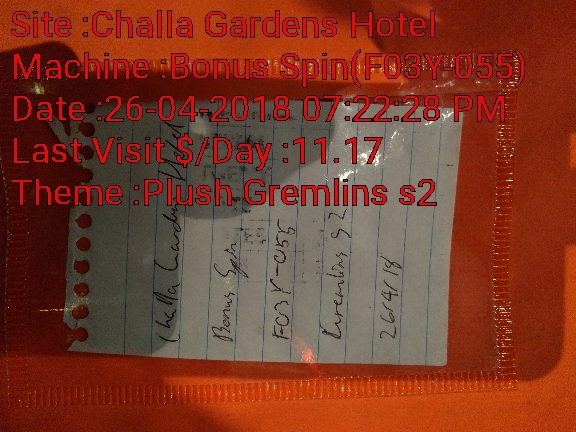 Site :Challa Gardens Hotel
Machine :Bonus Spin(F03Y-055)
Date :26-04-2018 07:22:28 PM
Last Visit $/Day :11.17
Theme :Plush Gremlins s2
Challa Gardens Hotel
Bonus Spin
F03Y-055
Gremlins S2
26/4/18